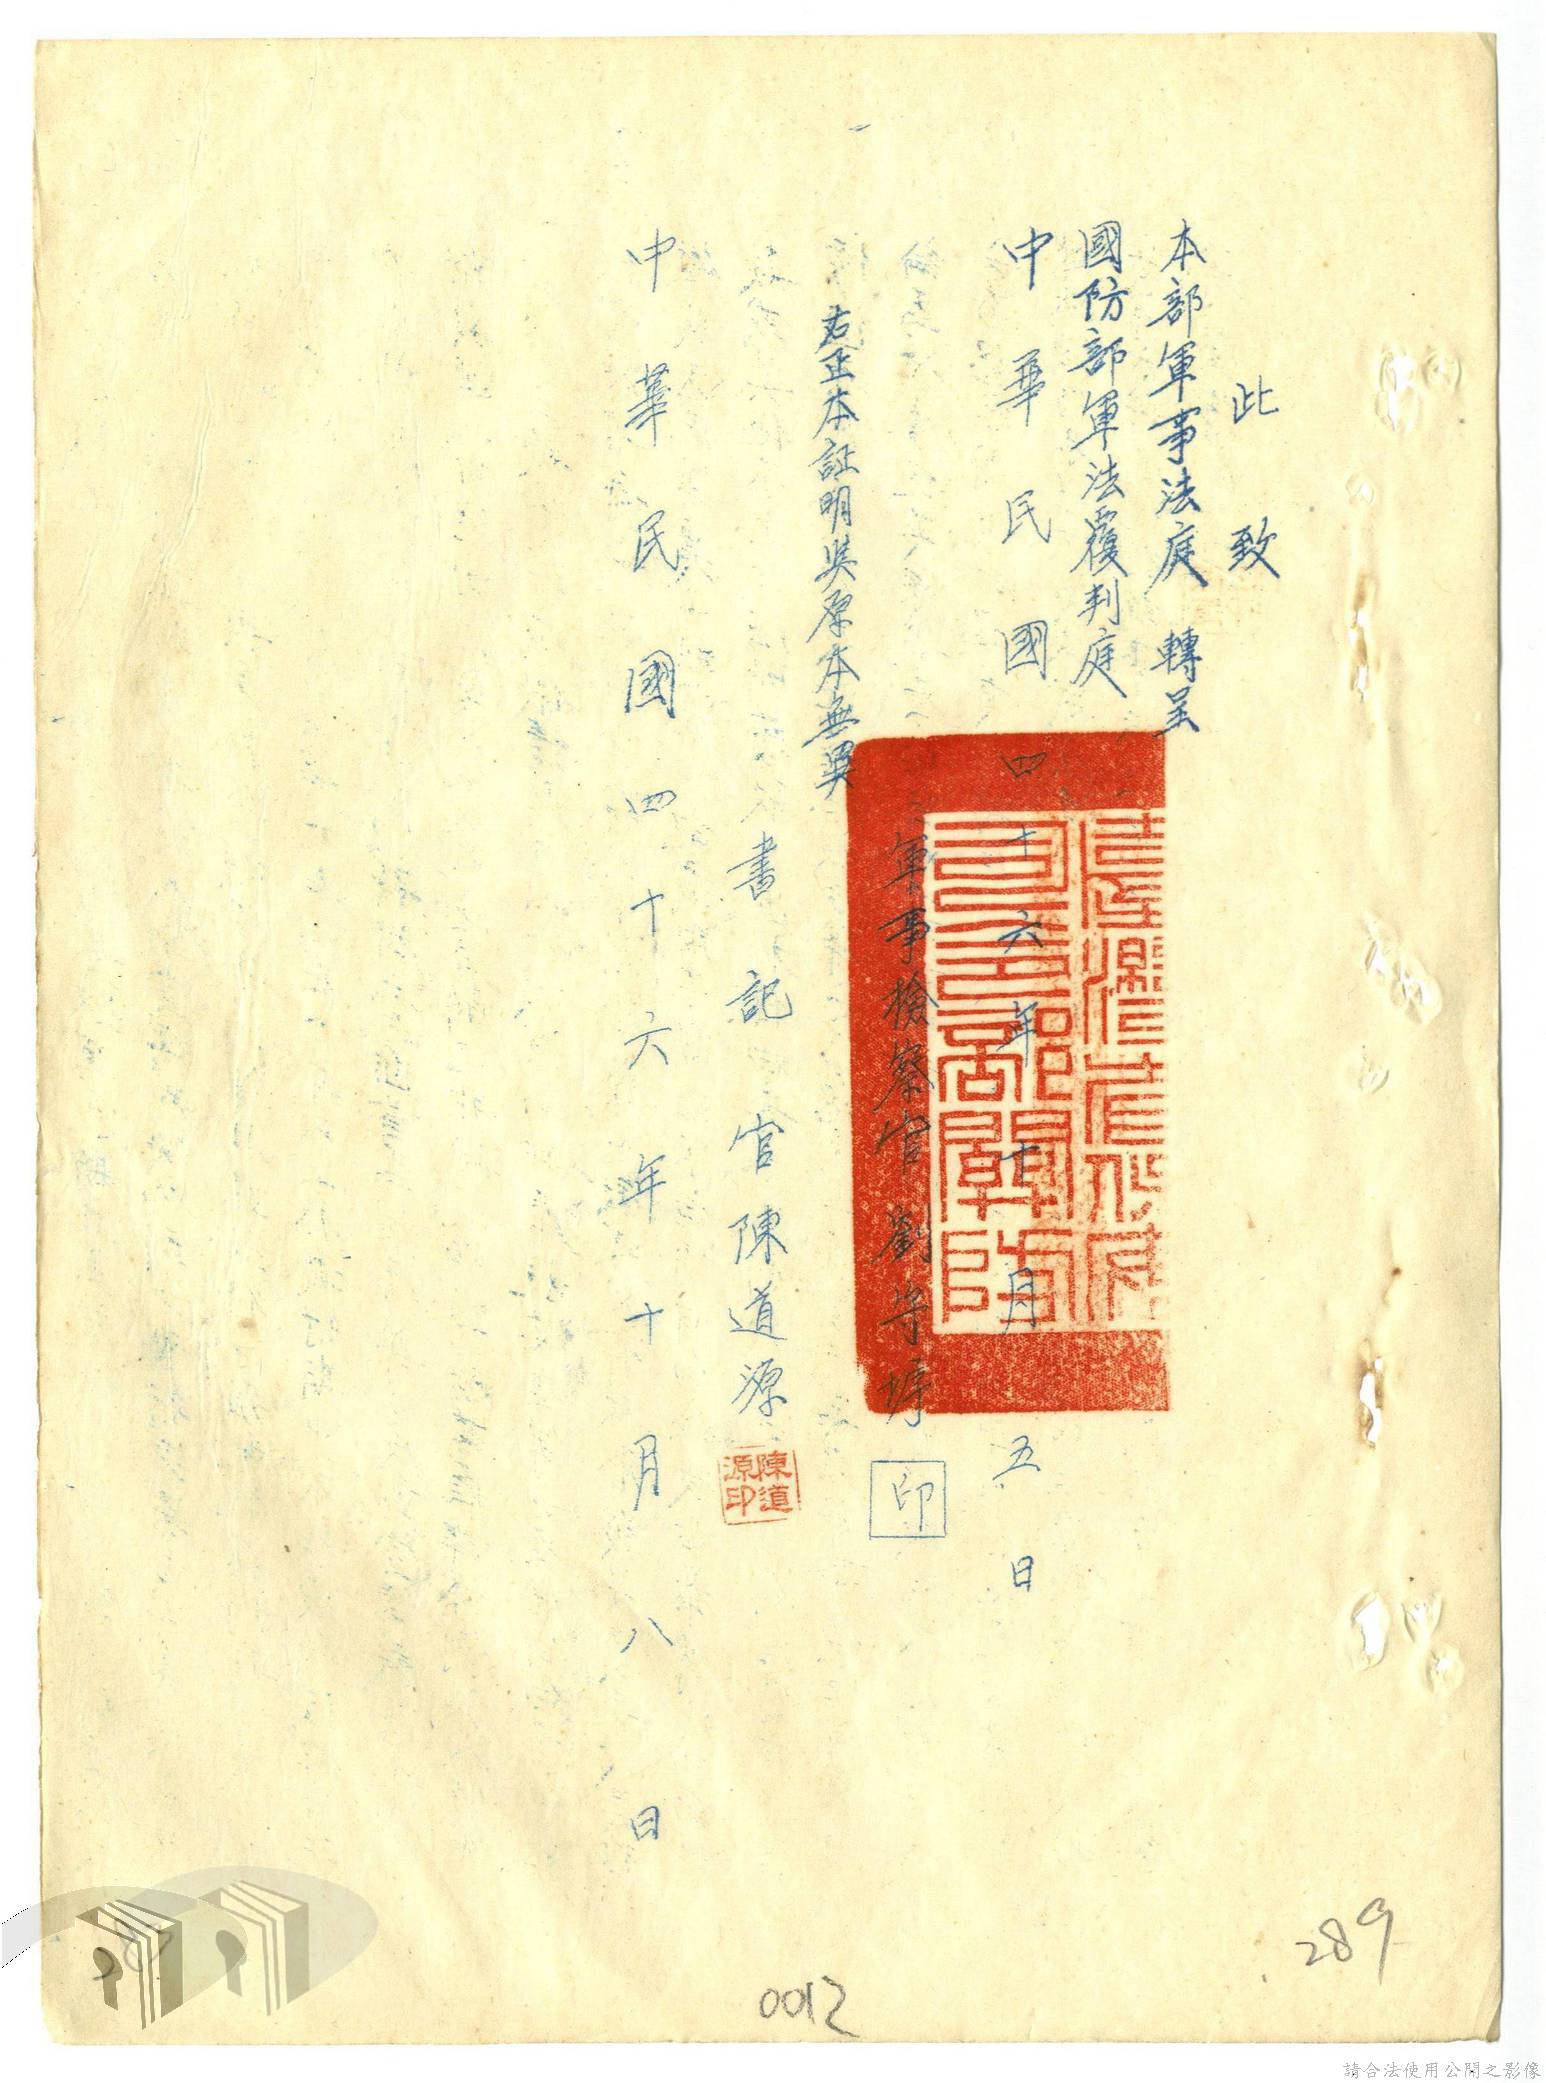 此致
本部軍事法庭 轉呈
國防部軍法覆判庭
中華民國四十六年十月五日
軍事檢察官劉守
印
右正本証明與原本無異
書記官陳道源
陳道源印
中華民國四十六年十月八日
289
0012
請合法使用公開之影像